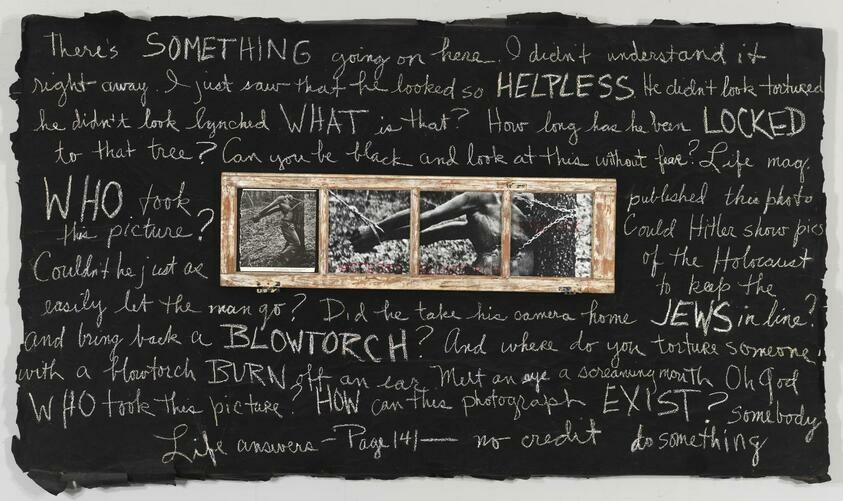 There's SOMETHING going on here. I didn't understand it
right away. I just saw that he looked so HELPLESS He didn't look tortured
he didn't look lynched. WHAT is that? How long has he been LOCKED
to that tree? Can you be black and look at this without fear? Life mag.
WHO took
this picture?
Couldn't he just as
published this photo
Could Hitler show pics
of the Holocaust
to keep the
easily let the man go? Did he take his camera home JEWS in line?
and bring back a BLOWTORCH? And where do you torture someone
with a blowtorch BURN off an ear Melt an eye a screaming mouth Oh God
WHO took this picture? HOW can this photograph EXIST? Somebody
Life answers – Page 141 — no credit do something